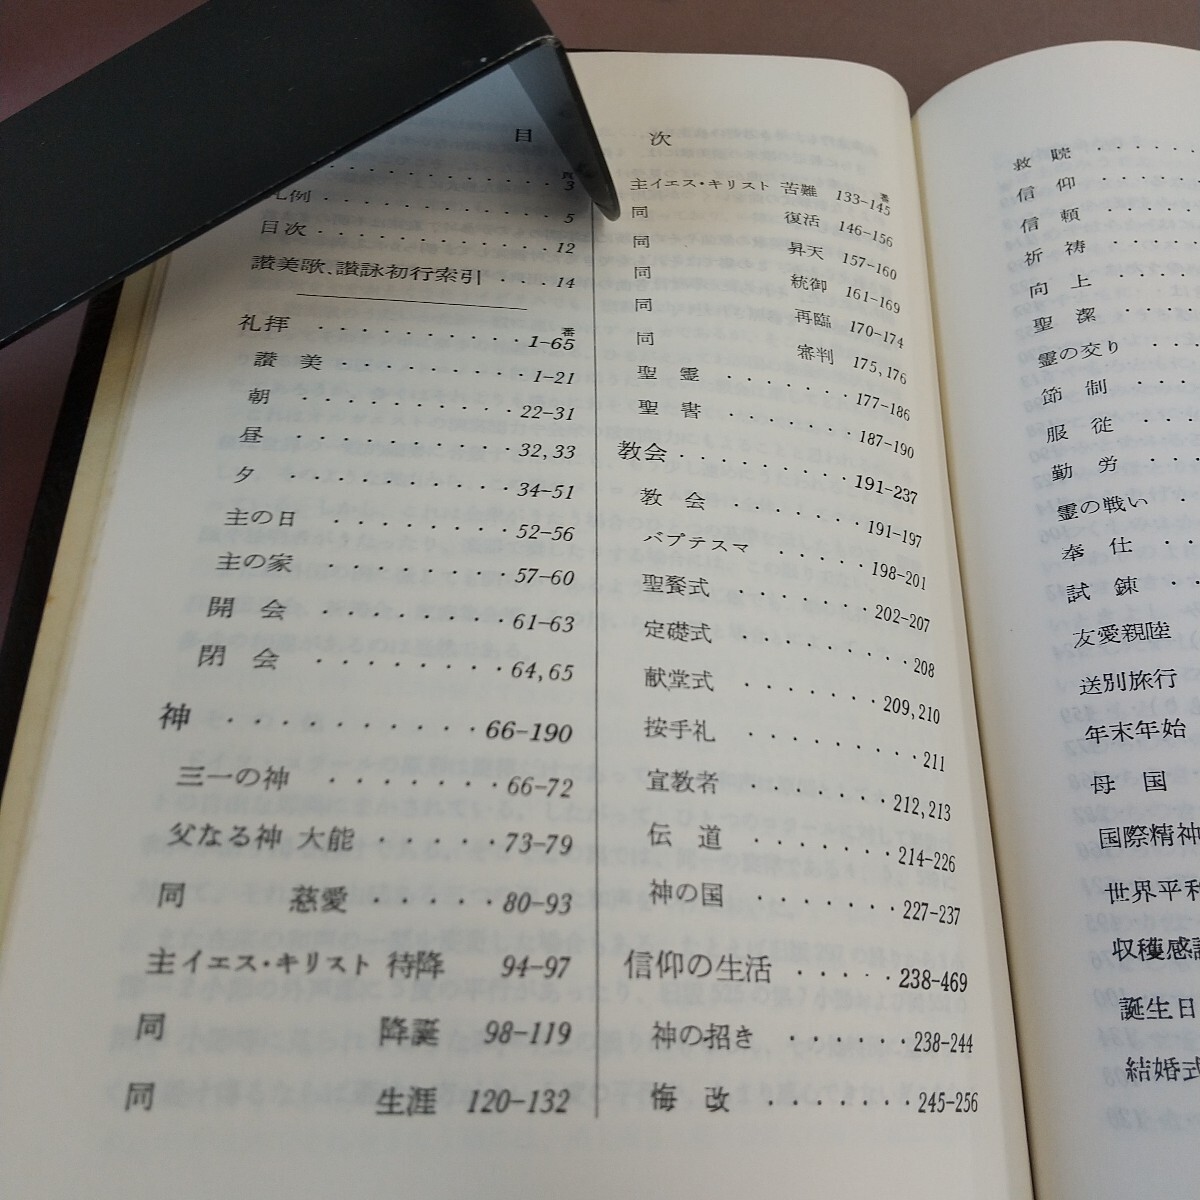 目 次
・・・・・・・・・・・・ 3
凡例・・・・・・・・・・・ 5
目次・・・・・・・・・・・ 12
讃美歌、讃詠初行索引 ・・・ 14
番
礼拝 ・・・・・・・・ 1-65
讃 美 ・・・・・・・・ 1-21
朝 ・・・・・・・・・・ 22-31
昼 ・・・・・・・・・・ 32,33
夕 ・・・・・・・・・・ 34-51
主の日 ・・・・・・・・ 52-56
主の家 ・・・・・・・・ 57-60
開 会 ・・・・・・・・ 61-63
閉 会 ・・・・・・・・ 64,65
神 ・・・・・・・・・・ 66-190
三一の神 ・・・・・・・ 66-72
父なる神 大能 ・・・・・ 73-79
同 慈愛 ・・・・・ 80-93
主イエス・キリスト 待降 94-97
同 降誕 98-119
同 生涯 120-132
番
主イエス・キリスト 苦難 133-145
同 復活 146-156
同 昇天 157-160
同 統御 161-169
同 再臨 170-174
同 審判 175,176
聖 霊 ・・・・・・ 177-186
聖 書 ・・・・・・ 187-190
教会・・・・・・・・・ 191-237
教 会 ・・・・・・・ 191-197
バプテスマ ・・・・・ 198-201
聖餐式 ・・・・・・・ 202-207
定礎式 ・・・・・・・ 208
献堂式 ・・・・・・・ 209,210
按手礼 ・・・・・・・・ 211
宣教者 ・・・・・・・ 212,213
伝 道 ・・・・・・・ 214-226
神の国 ・・・・・・・ 227-237
信仰の生活 ・・・・・ 238-469
神の招き ・・・・・・ 238-244
悔 改 ・・・・・・・ 245-256
救 贖 ・・・・・・
信 仰 ・・・・・
信 頼 ・・・・・
祈 祷 ・・・・・
向 上 ・・・・・
聖 潔 ・・・・
霊の交り ・・・
節 制 ・・・
服 従 ・・・
勤 労 ・・・
霊の戦い
奉 仕 ・・
試 錬 ・・
友愛親陸
送別旅行
年末年始
母 国
国際精神
世界平和
収穫感謝
誕生日
結婚式